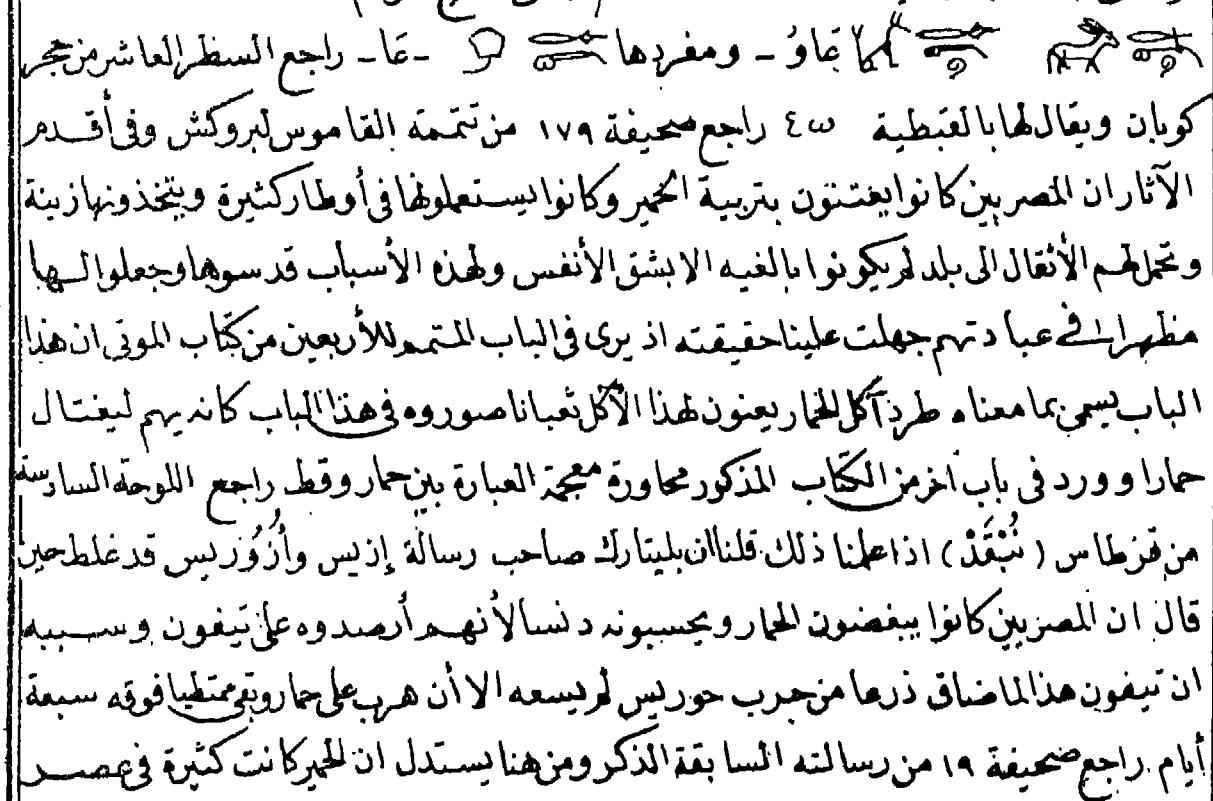 عَاوُ - ومفردها - عَا - راجع السطر العاشر من حجر
كوبان ويقال لها بالقبطية ⲉⲱ راجع صحيفة ١٧٩ من تتمة القاموس لبروكش وفى أقدم
الآثار ان المصريين كانوا يعتنون بتربية الحمير وكانوا يستعملونها فى أوطار كثيرة ويتخذونها زينة
وتحمل لهم الأثقال الى بلد لم يكونوا بالغيه الا بشق الأنفس ولهذه الأسباب قدسوها وجعلوا لها
مظهرا فى عبادتهم جهلت علينا حقيقته اذ يرى فى الباب المتمم للأربعين من كتاب الموتى ان هذا
الباب يسمى بما معناه طرد آكل الحمار يعنون لهذا الآكل ثعبانا صوروه فى هذا الباب كانه يهم ليغتال
حمارا وورد فى باب آخر من الكتاب المذكور محاورة معجمة العبارة بين حمار وقط راجع اللوحة السادسة
من قرطاس (نُبْقَدْ) اذا علمنا ذلك قلنا ان بليتارك صاحب رسالة إزيس وأُزُوْريس قد غلط حين
قال ان المصريين كانوا يبغضون الحمار ويحسبونه دنسا لأنهم أرصدوه على تيفون وسببه
ان تيفون هذا لما ضاق ذرعا من حرب حوريس لم يسعه الا أن هرب على حمار وبقى ممتطيا فوقه سبعة
أيام راجع صحيفة ١٩ من رسالته السابقة الذكر ومن هنا يستدل ان الحمير كانت كثيرة فى عصر